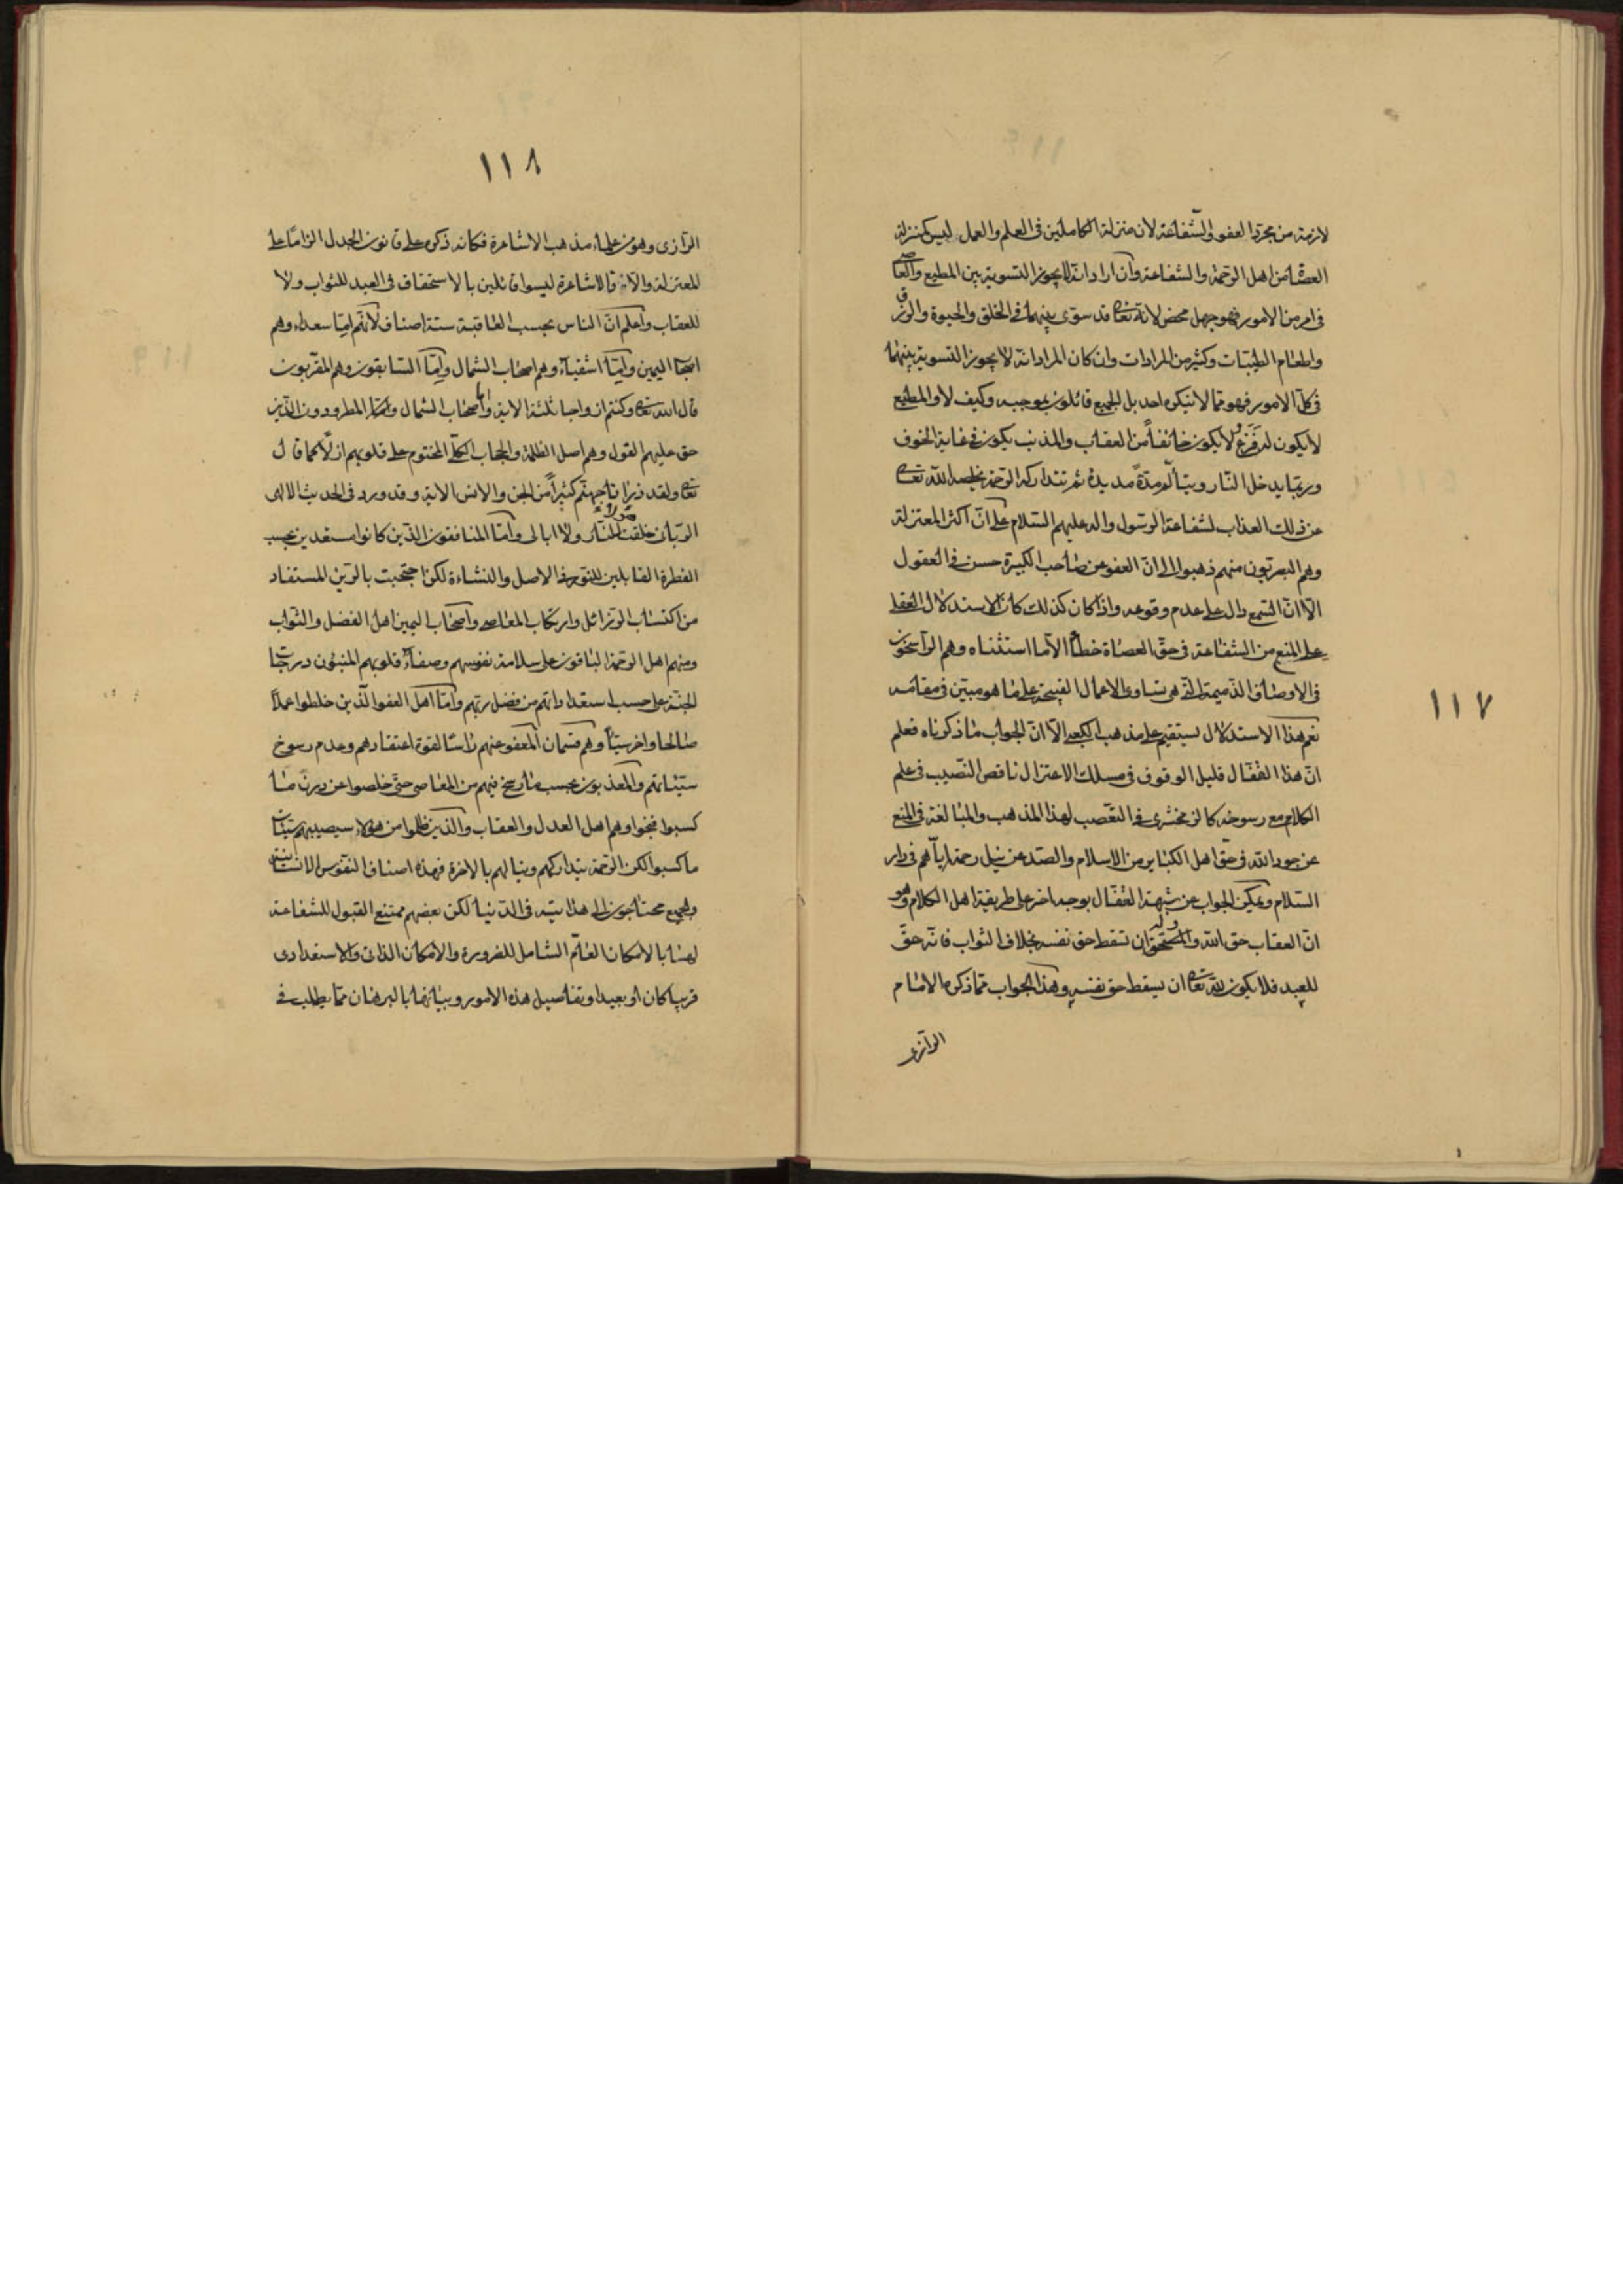 لازمة من مجرد العفو والشفاعة لان منزلة الكاملين فى العلم والعمل ليس كمنزلة
العصاة من اهل الرحمة والشفاعة وان اراد انه لا يجوز التسوية بين المطيع والعاصى
فى امر من الامور فهو جهل محض لانه تعا قد سوّى بينهما فى الخلق والحيوة والرزق
واطعام الطيبات وكثير من المرادات وان كان المراد انه لا يجوز التسوية بينهما
فى كل الامور فهو مما لا ينكره احد بل الجميع قائلون بموجبه وكيف لا والمطيع
لا يكون له فزع ولا يكون خائفاً من العقاب والمذنب يكون فى غاية الخوف
وربما يدخل النار ويتألم مدةً مديدة ثم تتداركه الرحمة يخلصه الله تعا
عن ذلك العذاب لشفاعة الرسول واله عليهم السلام على انّ اكثر المعتزلة
وهم البصريون منهم ذهبوا الى انّ العفو عن صاحب الكبيرة حسن فى العقول
الّا انّ السمع دال على عدم وقوعه واذا كان كذلك كان الاستدلال العقلى
على المنع من الشفاعة فى حق العصاة خطأ الا ما استثناه وهم الراسخون
فى الاوصاف الذميمة التى هى تساوى الاعمال القبيحة على ما هو مبيّن فى مقامه
نعم هذا الاستدلال يستقيم على مذهب الكعبى الّا انّ الجواب ما ذكرناه فعلم
انّ هذا القفّال قليل الوقوف فى مسلك الاعتزال ناقص النصيب فى علم
الكلام مع رسوخه كالزمخشرى فى التعصب لهذا المذهب والمبالغة فى المنع
عن جود الله فى حق اهل الكبائر من الاسلام والصدّ عن نيل رحمته اياهم فى دار
السلام ويمكن الجواب عن شبهة القفّال بوجه اخر على طريقة اهل الكلام وهو
انّ العقاب حق الله وللمستحق ان يسقط حق نفسه بخلاف الثواب فانه حق
للعبد فلا يكون لله تعا ان يسقط حق نفسه وهذا الجواب مما ذكره الامام
الرازى
١١٧
١١٨
الرازى وهو من علماء مذهب الاشاعرة فكانه ذكره على قانون الجدل الزاماً على
المعتزلة والّا فالاشاعرة ليسوا قائلين بالاستحقاق فى العبد للثواب ولا
للعقاب واعلم انّ الناس بحسب العاقبة ستة اصناف لانهم امّا سعداء وهم
اصحاب اليمين وامّا اشقياء وهم اصحاب الشمال وامّا السابقون وهم المقربون
قال الله تعا وكنتم ازواجا ثلثة الاية واصحاب الشمال امّا المطرودون الذين
حق عليهم القول وهم اصل الظلمة والحجاب الكلى المختوم على قلوبهم ازلاً كما قال
تعا ولقد ذرأنا لجهنم كثيراً من الجن والانس الاية وقد ورد فى الحديث الالهى
الربانى خلقت هؤلاء للنار ولا ابالى وامّا المنافقون الذين كانوا مستعدين بحسب
الفطرة القابلين للنور فى الاصل والنشاءة لكن احتجبت بالرين المستفاد
من اكتساب الرذائل وارتكاب المعاصى واصحاب اليمين اهل الفضل والثواب
ومنهم اهل الرحمة الباقون على سلامة نفوسهم وصفاء قلوبهم المتبئون درجات
الجنة على حسب استعداداتهم من فضل ربهم وامّا اهل العفو الذين خلطوا عملاً
صالحا واخر سيئاً وهم قسمان المعفو عنهم راسا لقوة اعتقادهم وعدم رسوخ
سيئاتهم والمعذبون بحسب ما رسخ فيهم من المعاصى حتى خلصوا عن درن ما
كسبوا فنجوا وهم اهل العدل والعقاب والذين ظلموا من هؤلاء سيصيبهم سيئات
ما كسبوا لكن الرحمة يتداركهم وينالهم بالاخرة فهذه اصناف النفوس الانسانية
والجميع محتاجون الى هداية فى الدنيا لكن بعضهم ممتنع القبول للشفاعة
لهنا بالامكان العام الشامل للضرورة والامكان الذاتى والاستعدادى
قريبا كان او بعيدا وتفاصيل هذه الامور وبيانها بالبرهان مما يطلب فى